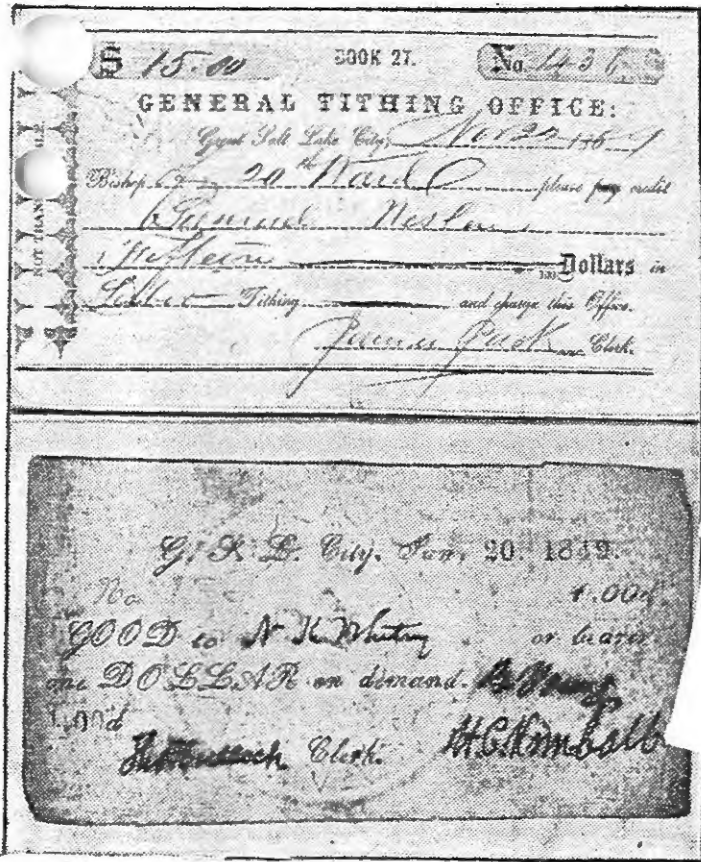 $ 15.00 BOOK 27. No. 436
GENERAL TITHING OFFICE:
Great Salt Lake City, Nov 22 186
Bishop 20th Ward please pay credit
Samuel
Fifteen 100 Dollars in
Tithing and charge this Office.
James Jack Clerk.
NOT TRAN ALE.
G. S. L. City. Jan. 20 1849.
No. 1.00d
GOOD to N K Whitney or bearer
one DOLLAR on demand. B Young
1.00d H C Kimball
Clerk.